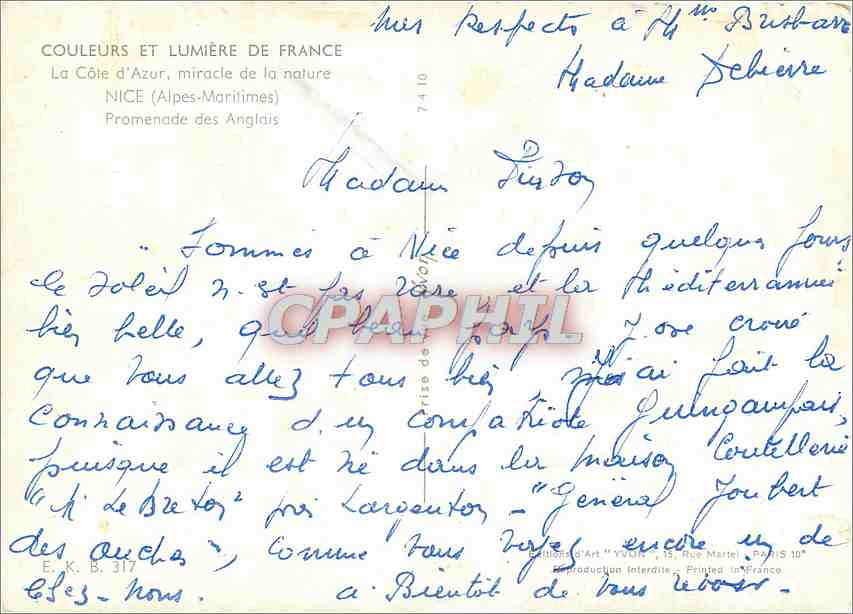 mes Respects à Mme Brisbarre
Madame Debierre
COULEURS ET LUMIÈRE DE FRANCE
La Côte d'Azur, miracle de la nature
NICE (Alpes-Maritimes)
Promenade des Anglais
7 4 10
Madame
"Sommes à Nice depuis quelques jours
le soleil n'est pas rare, et la Méditerrannée
bien belle, quel beau pays. J'ose croire
que vous allez tous bien, j'ai fait la
connaissance d'un compatriote Guingampais,
puisque il est né dans la maison Coutellerie
"M Le Breton" près Largenton - "Général Joubert
des", comme vous voyez encore un de
chez-nous. a Bientôt de vous revoir.
CPAPHIL
Prise de
E. K. B. 317
Editions d'Art "YVON", 15, Rue Martel - PARIS 10e
Reproduction Interdite - Printed in France